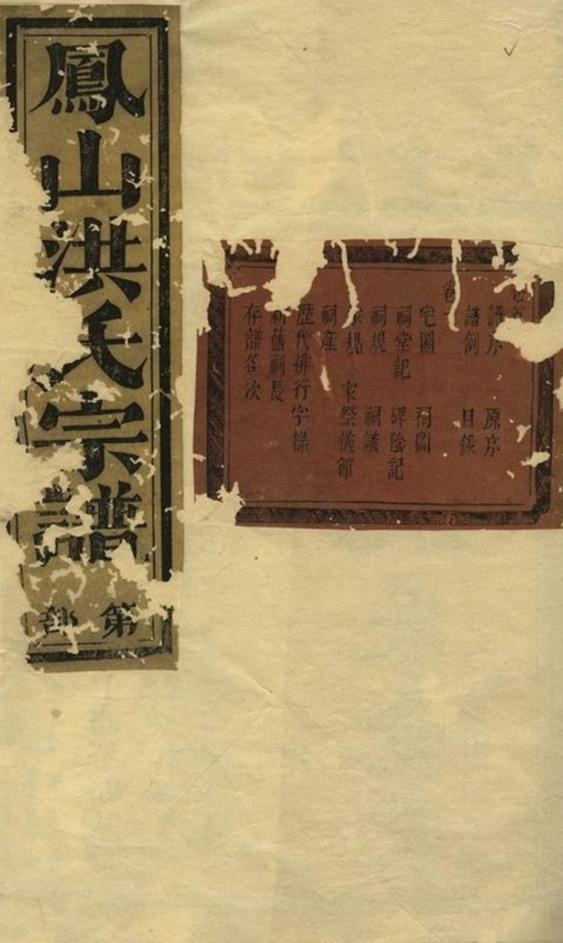 鳳山洪氏宗譜
第 部
譜序 原序
譜例 目錄
宅圖 祠圖
祠堂記 碑陰記
祠規 祠議
規 家祭儀節
祠產
歷代排行字樣
舊祠長
存譜名次